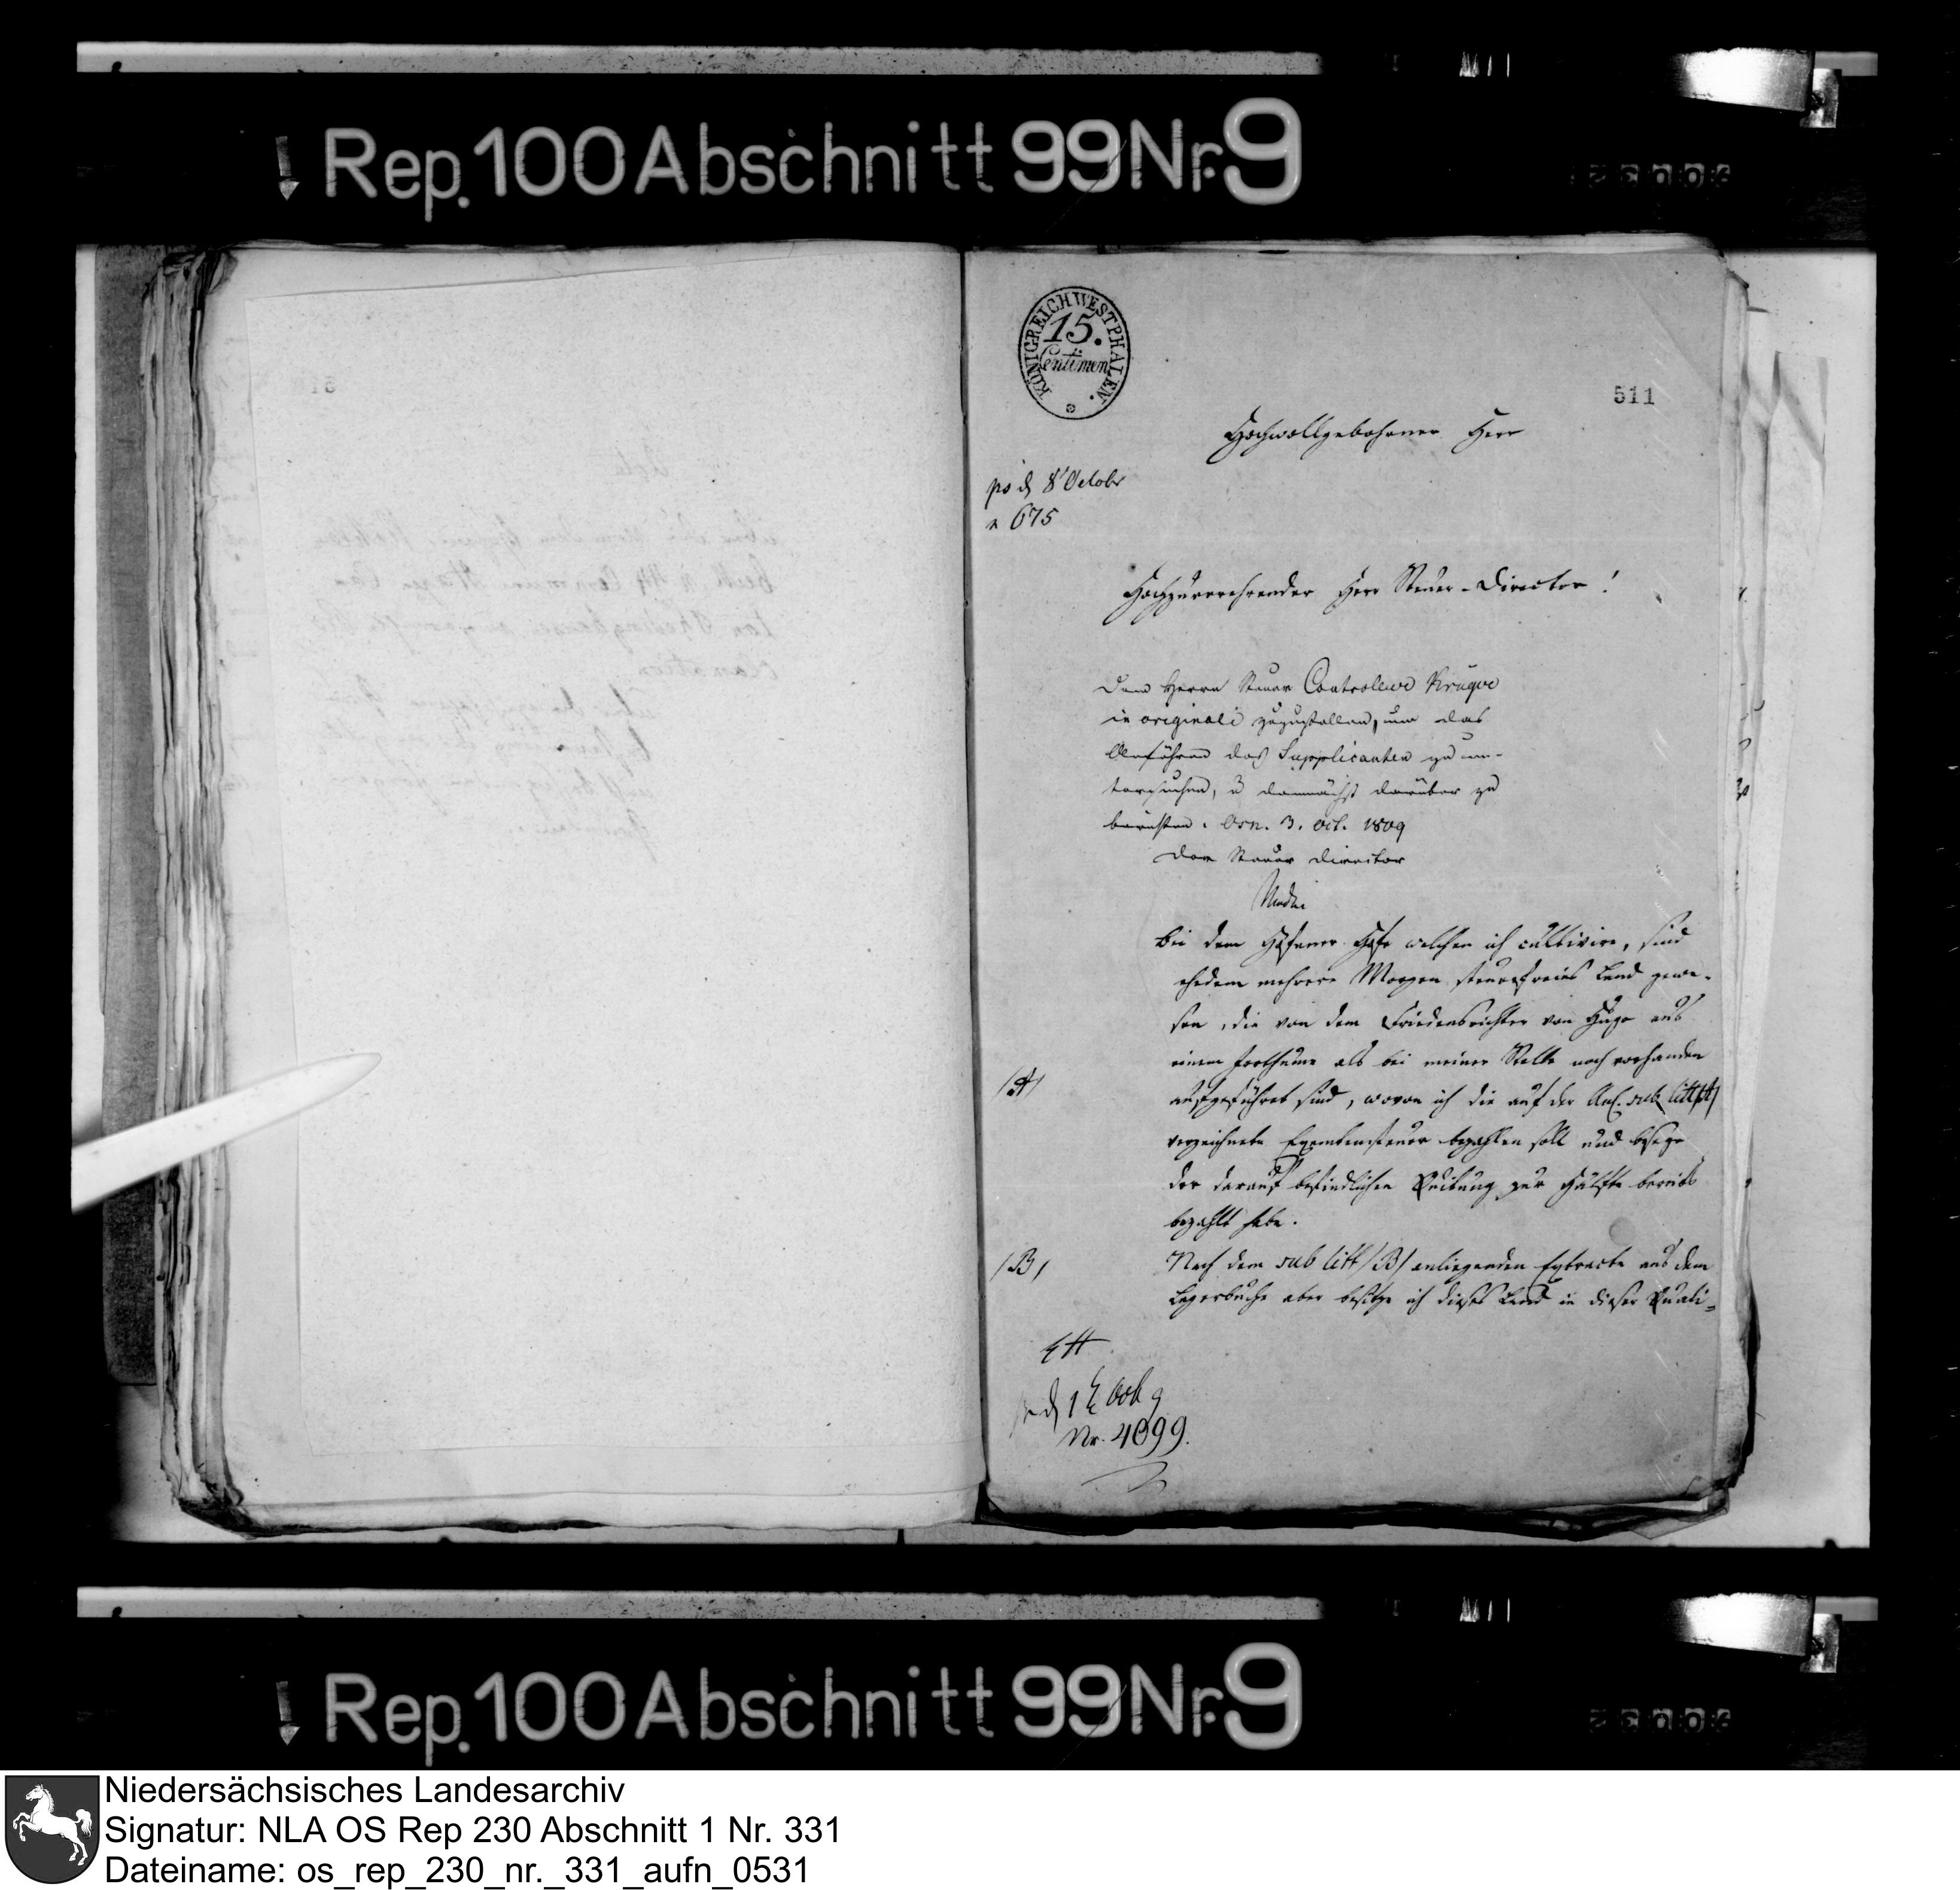 Rep. 100 Abschnitt 99 Nr. 9
KÖNIGREICH WESTPHALEN.
15.
Centimen
511
Hochwollgebohrner Herr
ps d 8t Octobr
n 675
Hochzuverehrender Herr Steuer-Director!
Dem Herrn Steuer Controlleur Krüger
in originali zuzustellen, um das
Anführen des Supplicanten zu un-
tersuchen, u demnächst darüber zu
berichten. Osn. 3. Oct. 1809
Der Steuer Director
Bei dem Hofe welchen ich cultivire, sind
ehedem mehrere Morgen steuerfreies Land gewe-
sen, die von dem Friedensrichter von Hugo aus
einem Irrthume als bei meiner Stelle noch vorhanden
/A/
aufgeführet sind, wovon ich die auf der Anl. sub litt /A/
verzeichnete Exemtensteuer bezahlen soll und besage
der darauf befindlichen Quitung zur Hälfte bereits
bezahlt habe.
/B/
Nach dem sub litt /B/ anliegenden Extracte aus dem
Lagerbuche aber besitze ich dieses Land in dieser Quali-
Nr. 4099.
Rep. 100 Abschnitt 99 Nr. 9
Niedersächsisches Landesarchiv
Signatur: NLA OS Rep 230 Abschnitt 1 Nr. 331
Dateiname: os_rep_230_nr._331_aufn_0531